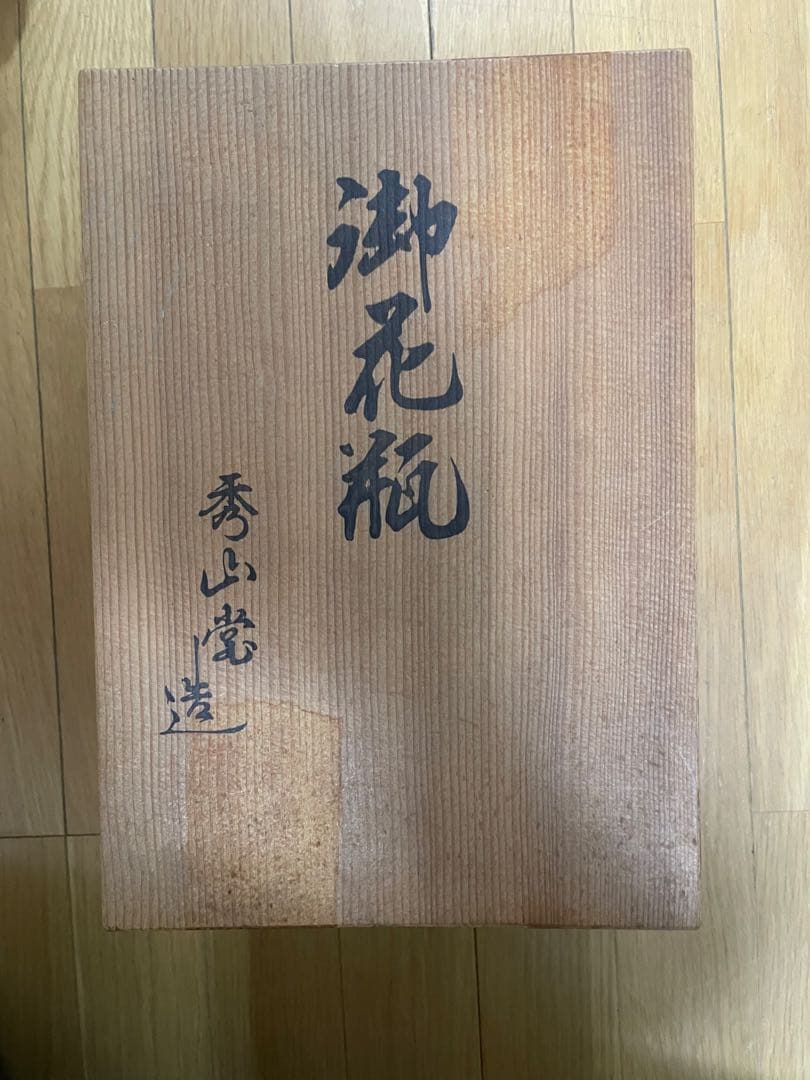 御花瓶
秀山堂造